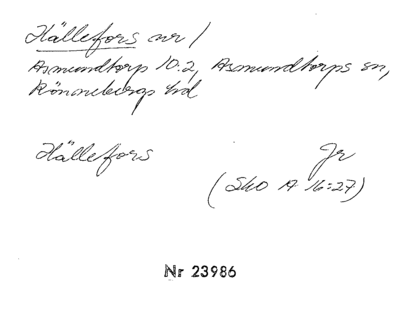 Hällefors nr 1
Asmundtorp 10.2, Asmundtorps sn,
Rönnebergs hd
Hällefors Jr
(Sko A 16:27)
Nr 23986